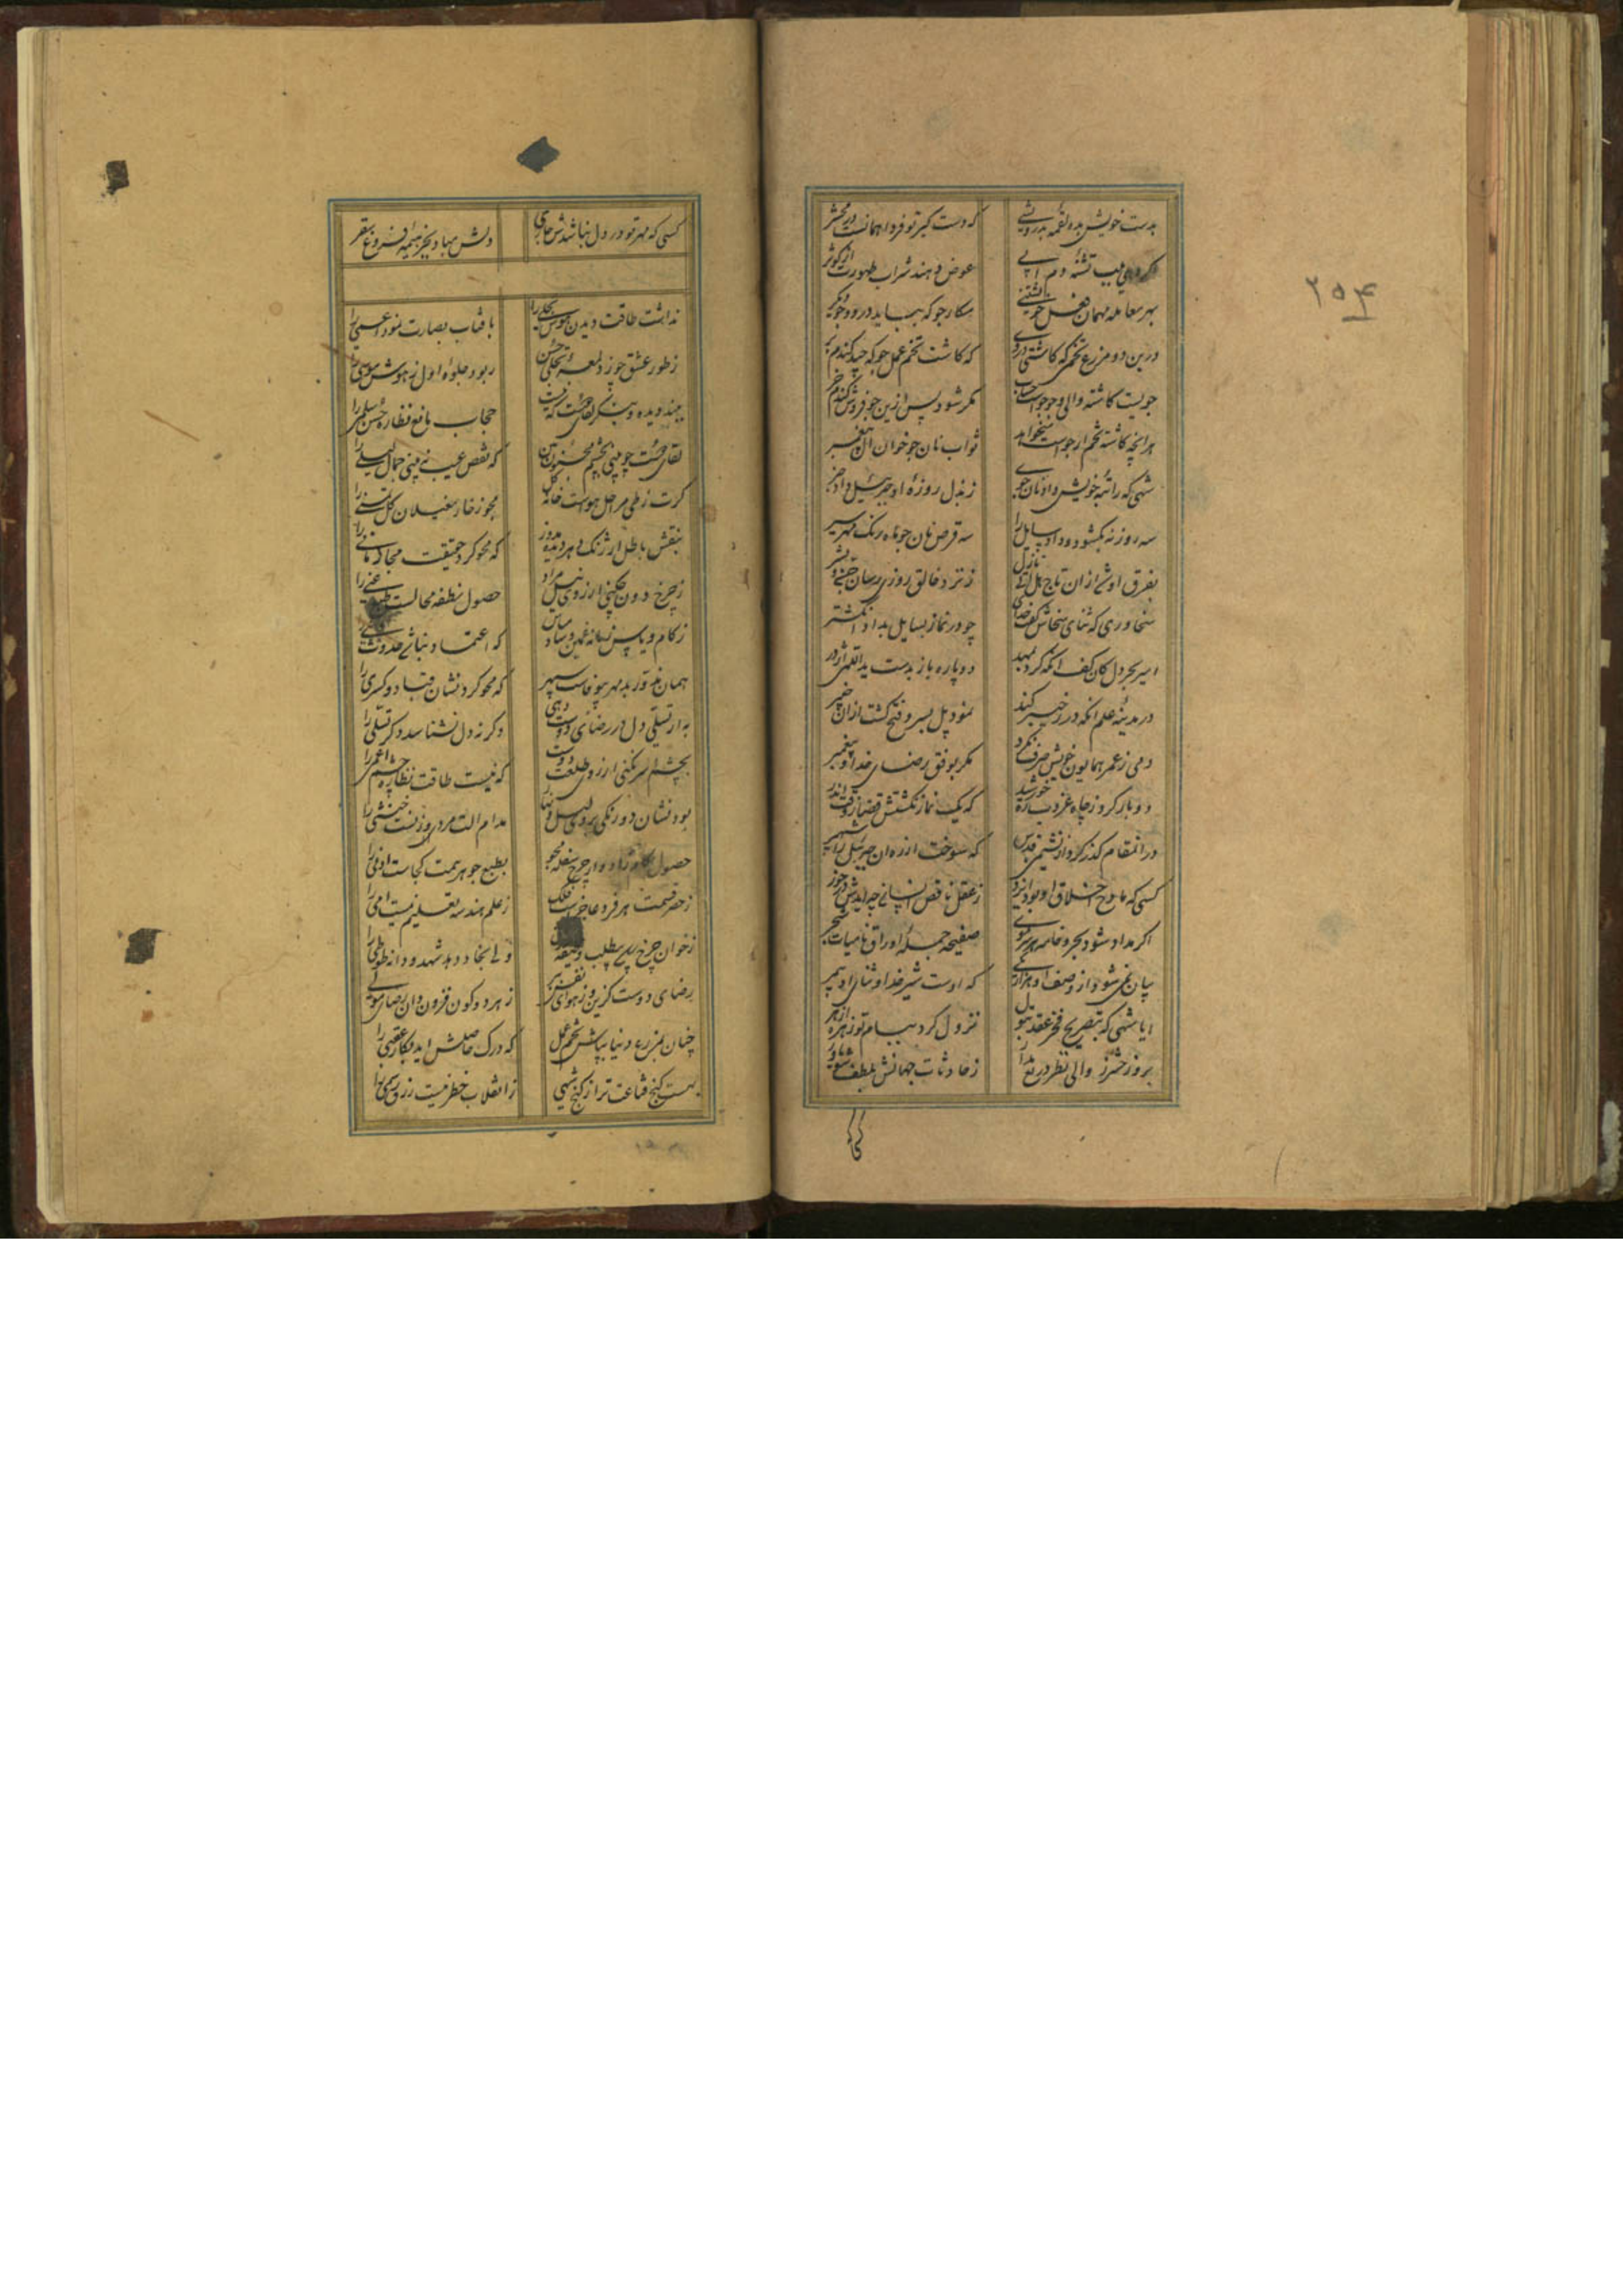 ۲۵۴
بدست خویش بده لقمه بدرویشی که دست گیر تو فردا همانست در محشر
تشنه دم آبی عوض دهند شراب طهورت از کوثر
بهر معامله مهمان نفس خویشتنی
درین دو مزرع تخمی که کاشتی دروی که کاشت تخم عمل جو که چید گندم
جویست کاشته والی و جو جواب حساب مگر شود پس ازین جو فروش گندم خر
هر آنچه کاشته تخم ارجوست میخواهد ثواب نان جو خوان
شهی که راتبه خویش داد نان جوی ز بذل روزه او جبرئیل داد خبر
سه روزه نه بگشود و داد سایل را سه قرص نان جو ماه رنگ مهر سیر
بفرق اوشی ازان تاج هل اتی نازل ز نزد خالق روزی رسان جنی و بشر
سخاوری که ثنای سخاش گفت خدای چو در نماز بسایل بداد انگشتر
امیر بحر دل کان کف آنکه کرد بمهد دو پاره باز بدست یداللهی اژدر
در مدینه علم آنکه در ز خیبر کند نمود پل بسر و فتح گشت ازان خیبر
دمی ز عمر همایون خویش صرف نکرد مگر بوفق رضای خدا و پیغمبر
دو بار کرد ز چاه غروب رد خورشید که یک نماز نگشتش قضا ز وقت اندر
در آنمقام گذر کرد از نشیمن قدس که سوخت از ره آن جبرئیل را شهپر
کسی که مادح اخلاق او بود ایزد ز عقل ناقص انسانی چه آیدش در خور
اگر مداد شود بحر و خامه هر سر موی صفیحه جمله اوراق نامیات شجر
بیان نمی شود از وصف او هزار یکی که اوست شیر خدا و ثنای او بیمر
ایا شهی که بتصریح فخر عقد بتول نزول کرد ببام تو زهره ازهر
بروز حشر ز والی نظر دریغ مدار ز حادثات جهانش بلطف شو یاور
کسی که مهر تو در دل نباشدش جاری دلش مباد بجز هیمه فروغ سقر
نداشت طاقت دیدن چو موسی تجلی را بآفتاب بصارت نبود اعمی را
ز طور عشق چو زد لمعه تجلی حسن ربود جلوه اول ز هوش موسی را
ببند دیده و بنگر لقای حجاب مانع نظاره حسن سلمی را
لقای دوست چو بینی بچشم مجنون بین که نقص عیب نبینی جمال لیلی را
گرت ز طی مراحل هواست خانه مجوز خار مغیلان گل تمنی را
بنقش باطل ارژنگ دهر دیده مدوز که محو کرد حقیقت مجاز مانی را
ز چرخ دون چکنی آرزوی نیل مراد حصول نطفه محالست
ز کام و یاس زمانه غمین و شاد مباش که اعتماد نباشد
همان نه در بد مهر بیوفاست سپهر که محو کرد نشان قباد و کسری را
به ار تسلی دل در رضای دوست دهی وگرنه دل نشناسد دگر تسلی را
بچشم سر نکنی آرزوی طلعت دوست که نیست طاقت نظاره چشم اعمی را
بود نشان دو رنگی بروی لیل و نهار مدام آلت مردی و زنیست خنثی را
حصول از چرخ سفله مجو بطبع جوهر همت کجاست ادنی را
ز حصر قسمت هر فرد عاجزست فلک ز علم هندسه تعلیم نیست امی را
ز خوان چرخ طلب ولی بخاد دهد شهد و دانه طوطی را
رضای دوست گزین و ز هوای نفس ببر ز هر دو کون فزون دان رضای مولی را
چنان بمزرع دنیا بپاش تخم عمل که درک حاصلش آید بکار عقبی را
بست گنج قناعت ترا ز گنج شهی ز انقلاب خطر نیست